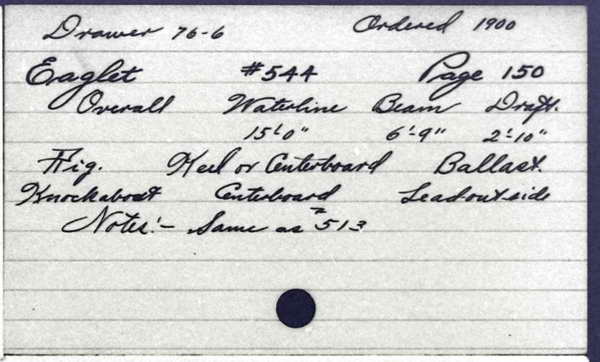 Drawer 76-6 Ordered 1900
Eaglet #544 Page 150
Overall Waterline Beam Draft.
15'-0" 6'-9" 2'-10"
Rig. Keel or Centerboard Ballast.
Knockabout Centerboard Lead outside
Notes:- Same as #513